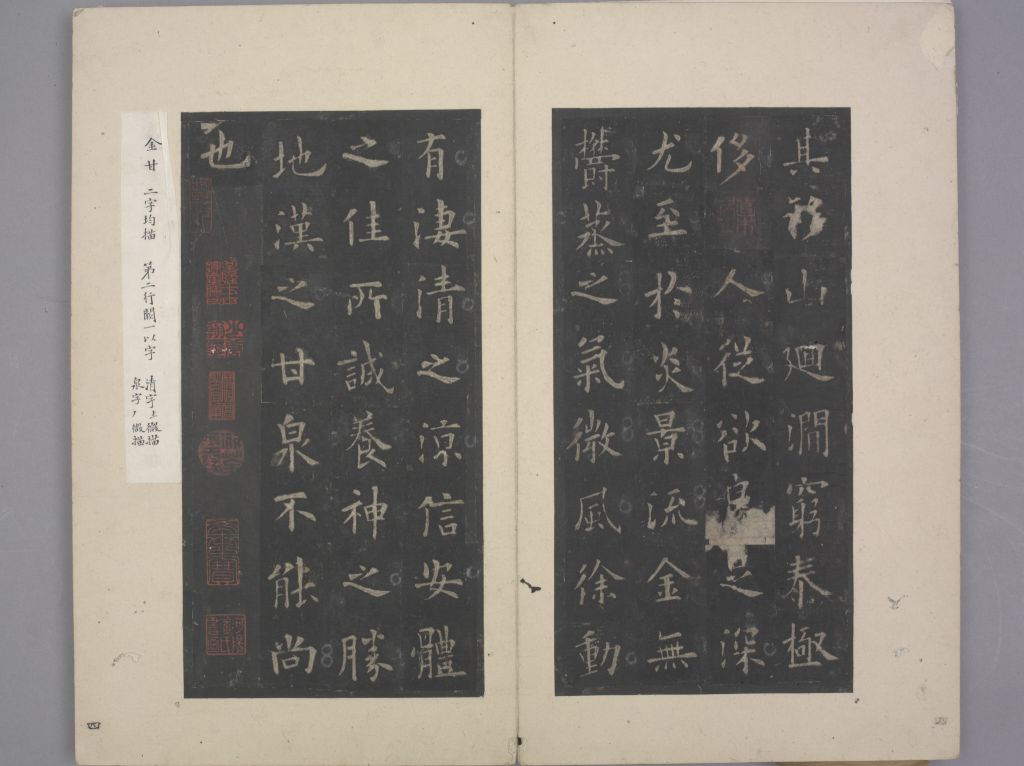 其移山廻澗窮泰極
侈人從欲良足深
尤至於炎景流金無
鬱蒸之氣微風徐動
有淒清之涼信安體
之佳所誠養神之勝
地漢之甘泉不能尚
也
金甘 二字均描 第二行闕一以字
清字上微描
泉字丿微描
四